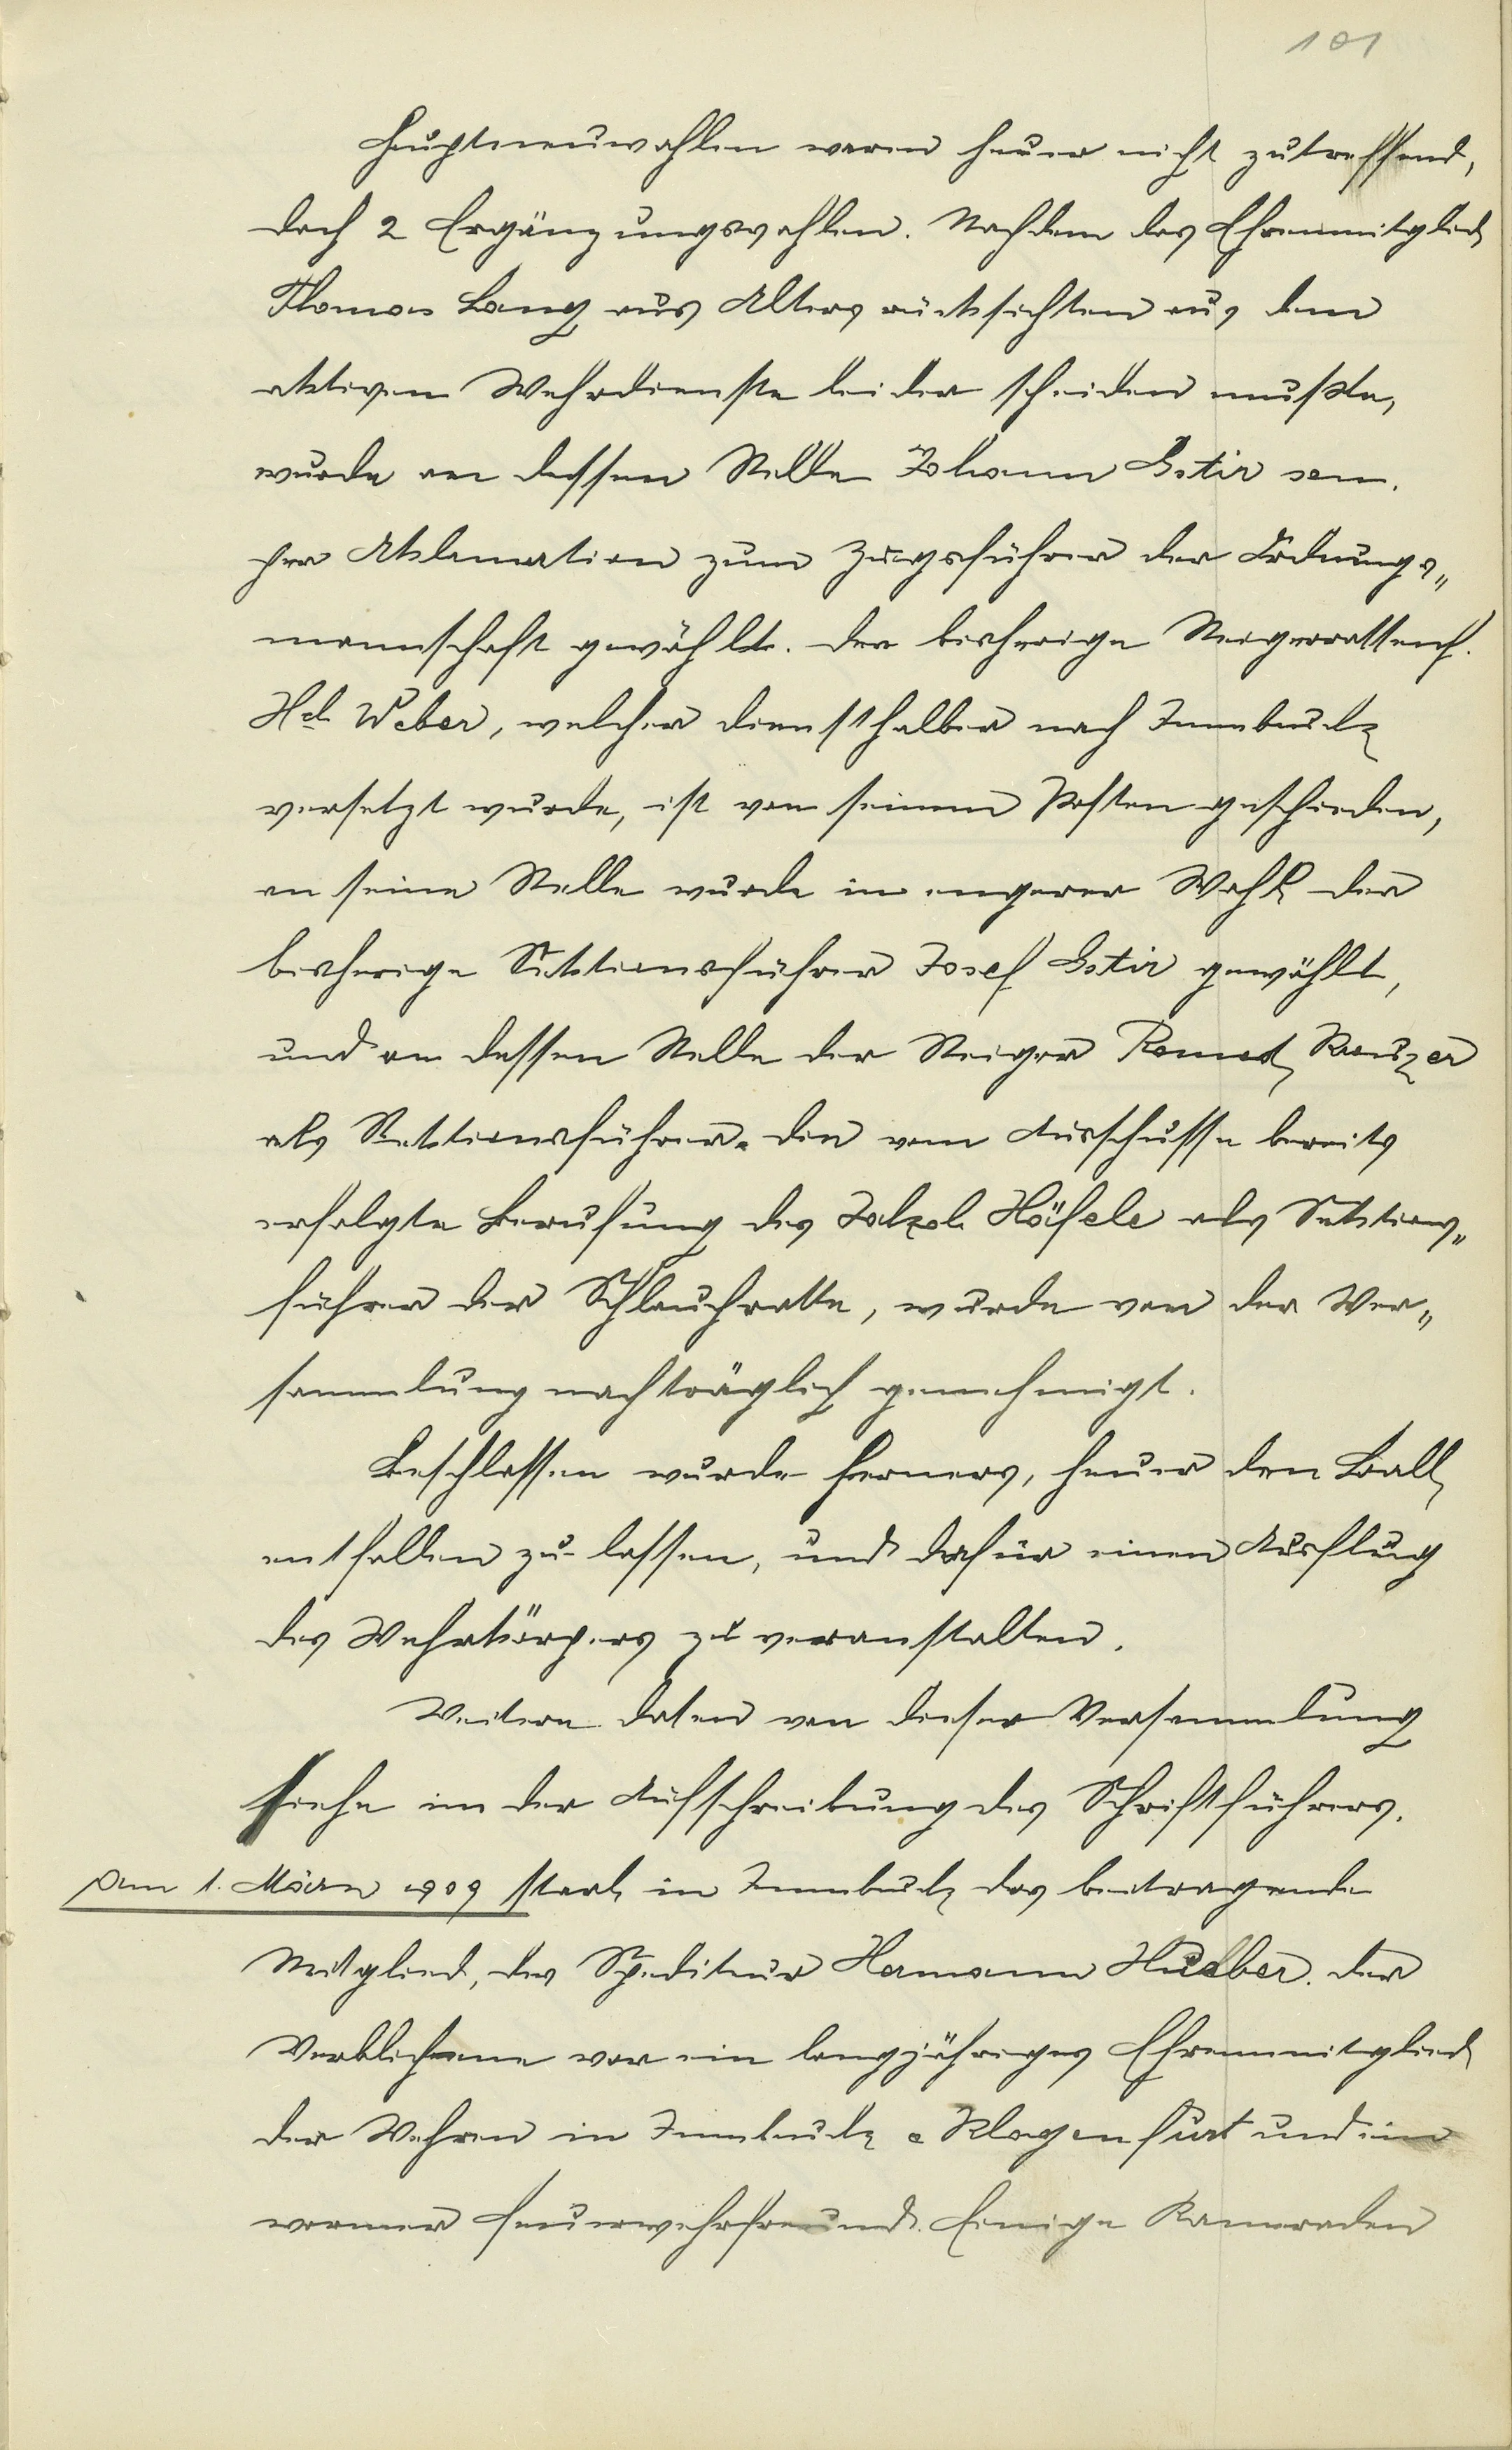 101
Hauptneuwahlen waren heuer nicht zutreffend,
doch 2 Ergänzungswahlen. Nachdem das Ehrenmitglied
Thomas Lang aus Altersrücksichten aus dem
aktiven Wehrdienste leider scheiden mußte,
wurde an dessen Stelle Johann Gstir sen.
per Aklamation zum Zugsführer der Ordnungs„
mannschaft gewählt. Der bisherige Steigerrottenf.
Hel. Weber, welcher diensthalber nach Innsbruck
versetzt wurde, ist von seinem Posten geschieden,
an seine Stelle wurde in engerer Wahl der
bisherige Sektionsführer Josef Gstir gewählt,
und an dessen Stelle der Steiger Romed Kreuzer
als Sektionsführer. Die vom Ausschusse bereits
erfolgte Berufung des Höfele als Sektions„
führer der Schlauchrotte, wurde von der Ver„
sammlung nachträglich genehmigt.
Beschlossen wurde ferners, heuer den Ball
entfallen zu lassen, und dafür einen Ausflug
des Wehrkörpers zu veranstalten.
Weitere Daten von dieser Versammlung
siehe in der Aufschreibung des Schriftführers.
Am 1. März 1909 starb in Innsbruck das beitragende
Mitglied, der Spediteur Hermann Hueber. Der
Verblichene war ein langjähriges Ehrenmitglied
der Wehren in Innsbruck & Klagenfurt und ein
warmer Feuerwehrfreund. Einige Kameraden